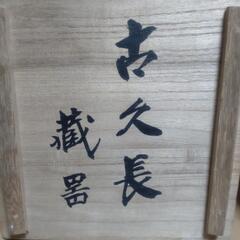 古久長
藏器